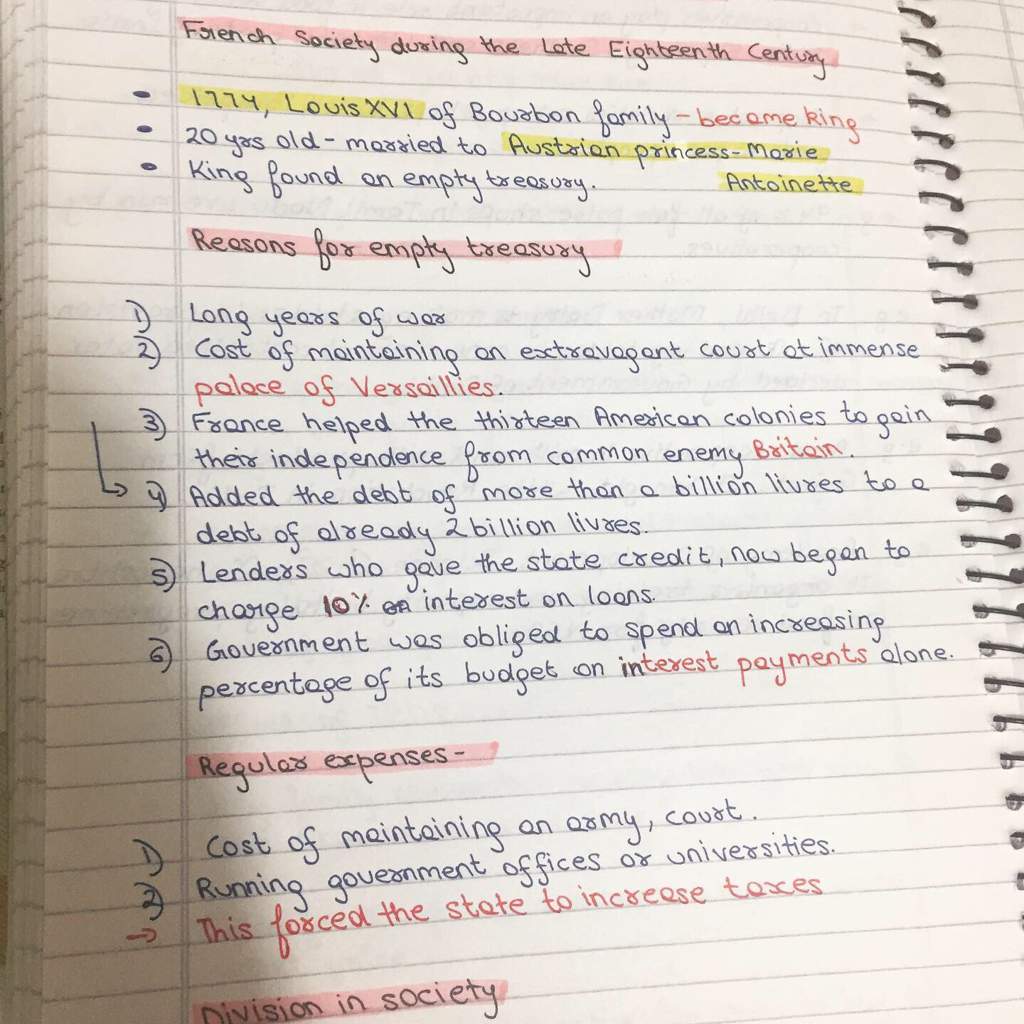 French Society during the Late Eighteenth Century
• 1774, Louis XVI of Bourbon family - became king
• 20 yrs old - married to Austrian princess - Marie
• King found an empty treasury. Antoinette
Reasons for empty treasury
1) Long years of war
2) Cost of maintaining an extravagant court at immense
palace of Versaillies.
3) France helped the thirteen American colonies to gain
their independence from common enemy Britain.
4) Added the debt of more than a billion livres to a
debt of already 2 billion livres.
5) Lenders who gave the state credit, now began to
charge 10% on interest on loans.
6) Government was obliged to spend an increasing
percentage of its budget on interest payments alone.
Regular expenses -
1) Cost of maintaining an army, court.
2) Running government offices or universities.
→ This forced the state to increase taxes
Division in society